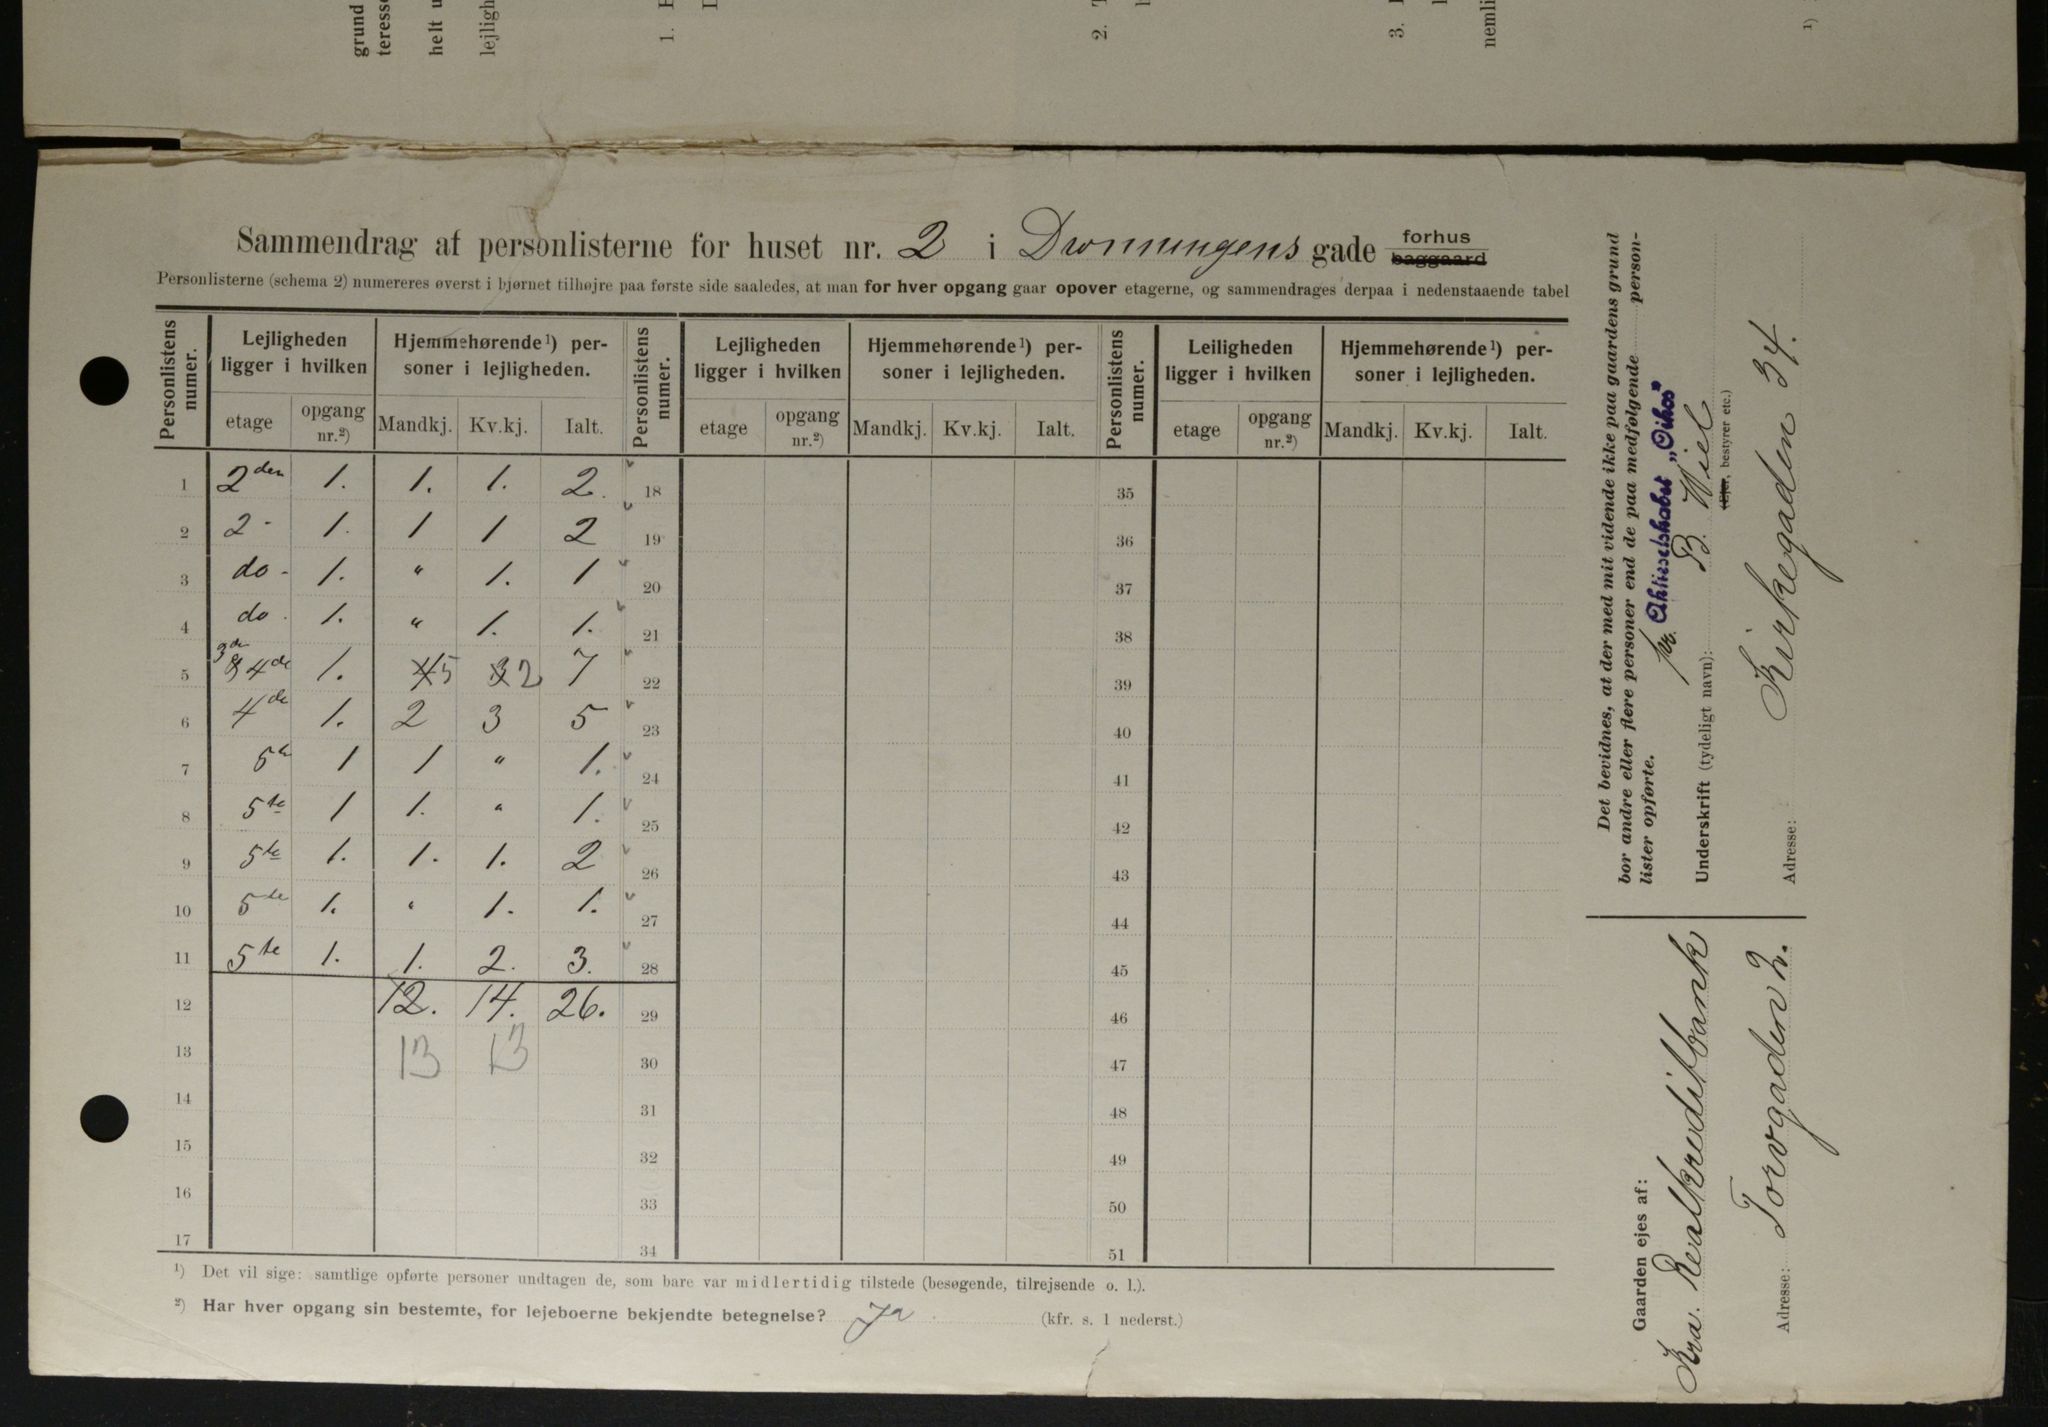 grund
teresse
helt u
lejligh
1.
2.
3.
nemli
1)
Sammendrag af personlisterne for huset nr. 2 i Dronningens gade forhus baggaard
Personlisterne (schema 2) numereres øverst i hjørnet tilhøjre paa første side saaledes, at man for hver opgang gaar opover etagerne, og sammendrages derpaa i nedenstaaende tabel
Personlistens numer. | Lejligheden ligger i hvilken | Hjemmehørende 1) personer i lejligheden. | Personlistens numer. | Lejligheden ligger i hvilken | Hjemmehørende 1) personer i lejligheden. | Personlistens numer. | Leiligheden ligger i hvilken | Hjemmehørende 1) personer i lejligheden.
etage | opgang nr. 2) | Mandkj. | Kv.kj. | Ialt. | etage | opgang nr. 2) | Mandkj. | Kv.kj. | Ialt. | etage | opgang nr. 2) | Mandkj. | Kv.kj. | Ialt.
1 2den 1. 1. 1. 2. 18 35
2 2 - 1. 1 1 2 19 36
3 do - 1. " 1. 1 20 37
4 do. 1. " 1. 1. 21 38
5 3de & 4de 1. 4 5 3 2 7 22 39
6 4de 1. 2 3 5 23 40
7 5te 1 1 " 1. 24 41
8 5te 1 1. " 1. 25 42
9 5te 1. 1. 1. 2 26 43
10 5te 1. " 1. 1. 27 44
11 5te 1. 1. 2. 3. 28 45
12 12. 14. 26. 29 46
13 13 13 30 47
14 31 48
15 32 49
16 33 50
17 34 51
1) Det vil sige: samtlige opførte personer undtagen de, som bare var midlertidig tilstede (besøgende, tilrejsende o. l.).
2) Har hver opgang sin bestemte, for lejeboerne bekjendte betegnelse? Ja (kfr. s. 1 nederst.)
Det bevidnes, at der med mit vidende ikke paa gaardens grund
bor andre eller flere personer end de paa medfølgende person-
lister opførte.
pr. Aktieselskabet „Oikos"
Underskrift (tydeligt navn): B. Wiel
(Ejer, bestyrer etc.)
Adresse: Kirkegaden 34.
Gaarden ejes af:
Kra. Realkreditbank
Adresse: Torvgaden 2.